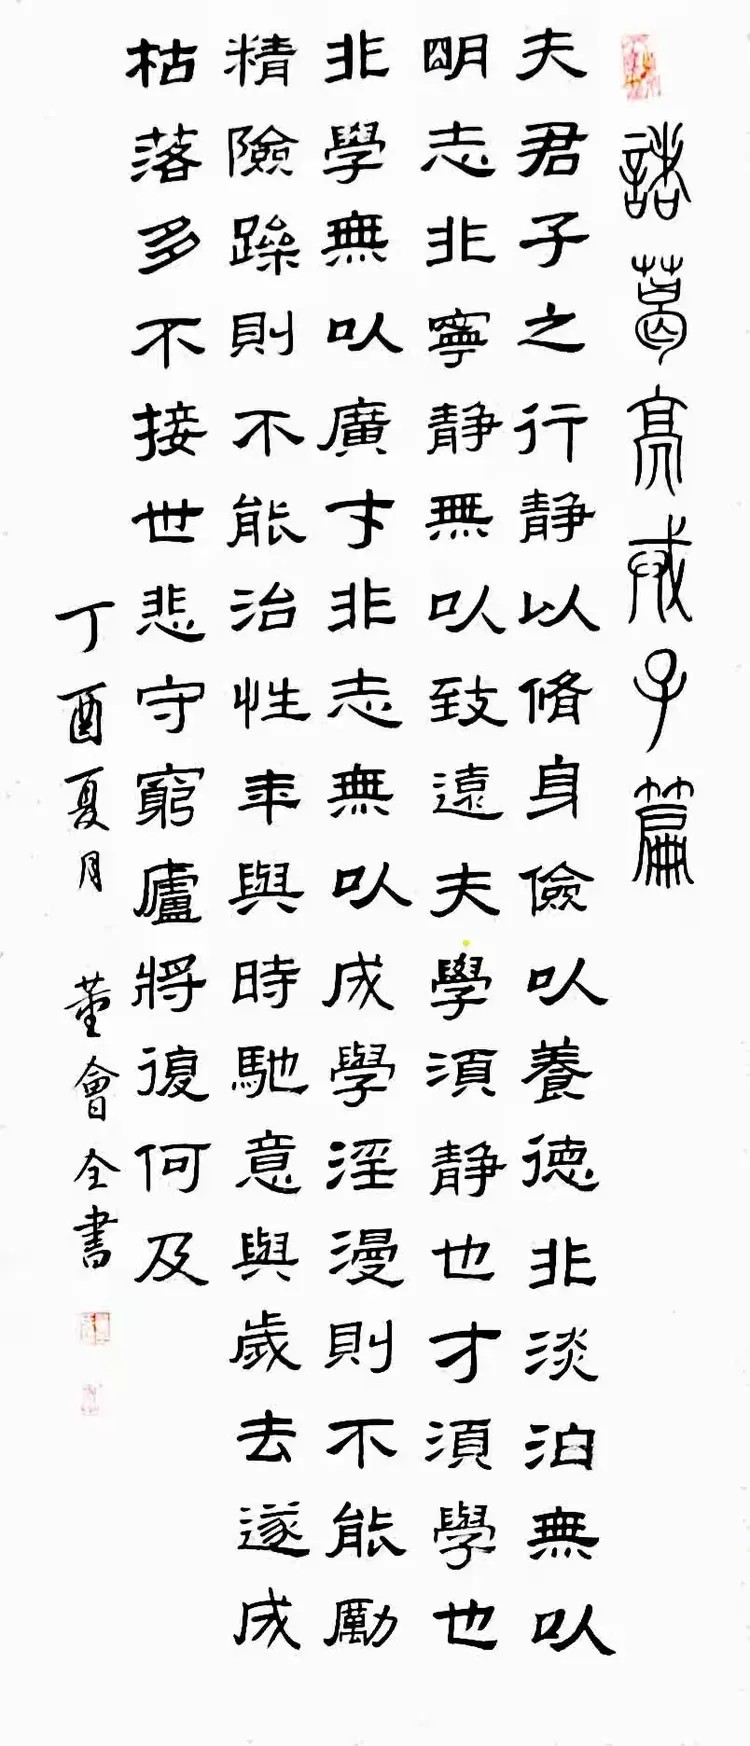 諸葛亮戒子篇
夫君子之行静以脩身儉以養德非淡泊無以
明志非寧静無以致遠夫學須静也才須學也
非學無以廣才非志無以成學淫漫則不能勵
精險躁則不能治性年與時馳意與歲去遂成
枯落多不接世悲守窮廬將復何及
丁酉夏月 董會全書